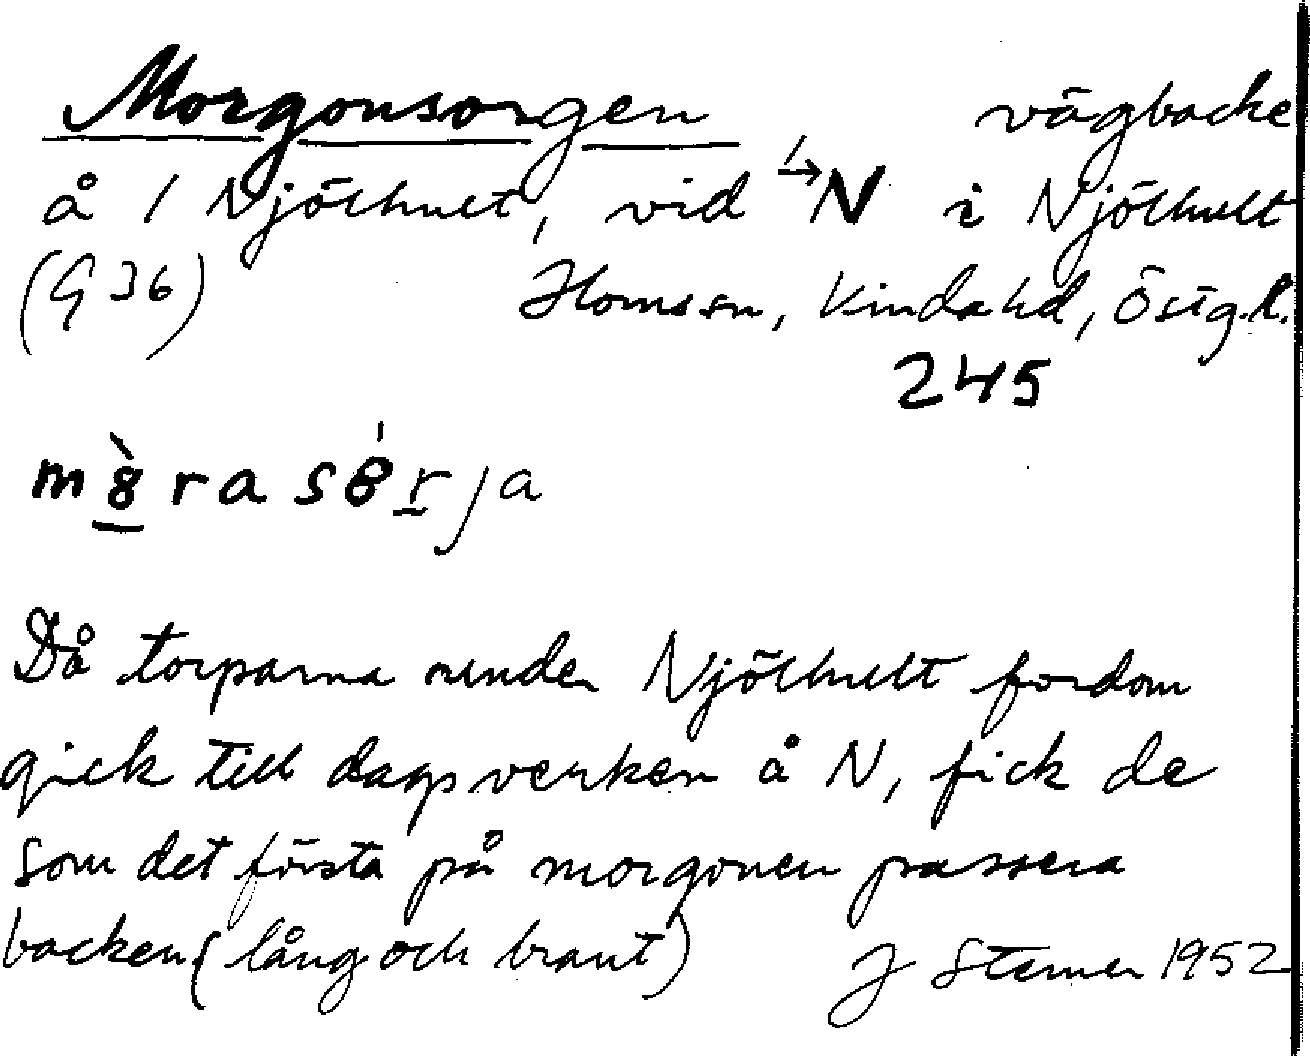 Morgonsorgen vägbacke
å 1 Njölhult, vid ↳N i Njölhult
(G 36) Horns sn, Kinda hd, Östg.l.
245
m8̀rasɵ́rja
Då torparna under Njölhult fordom
gick till dagsverken å N, fick de
som det första på morgonen passera
backen (lång och brant) J Sterner 1952